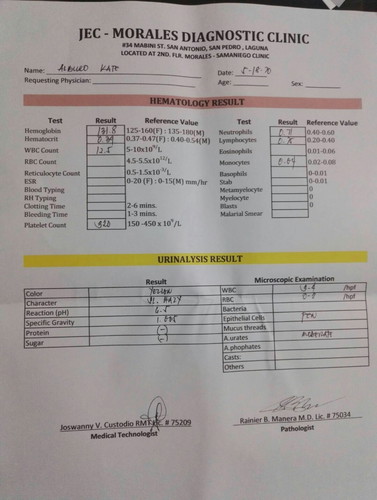 JEC - MORALES DIAGNOSTIC CLINIC
#34 MABINI ST. SAN ANTONIO, SAN PEDRO, LAGUNA
LOCATED AT 2ND. FLR. MORALES - SAMANIEGO CLINIC
Name: KATE Date:
Requesting Physician: Age: Sex:
HEMATOLOGY RESULT
Test Result Reference Value Test Result Reference Value
Hemoglobin 125-160(F) : 135-180(M) Neutrophils 0.40-0.60
Hematocrit 0.37-0.47(F) : 0.40-0.54(M) Lymphocytes 0.20-0.40
WBC Count 12.5 5-10x10⁹/L Eosinophils 0.01-0.06
RBC Count 4.5-5.5x10¹²/L Monocytes 0.04 0.02-0.08
Reticulocyte Count 0.5-1.5x10⁻³/L Basophils 0-0.01
ESR 0-20 (F) : 0-15(M) mm/hr Stab 0-0.01
Blood Typing Metamyelocyte 0
RH Typing Myelocyte 0
Clotting Time 2-6 mins. Blasts 0
Bleeding Time 1-3 mins. Malarial Smear
Platelet Count 320 150 -450 x 10⁹/L
URINALYSIS RESULT
Result Microscopic Examination
Color YELLOW WBC /hpf
Character SL. HAZY RBC /hpf
Reaction (pH) 6.5 Bacteria
Specific Gravity Epithelial Cells FEW
Protein (-) Mucus threads
Sugar (-) A.urates MODERATE
A.phophates
Casts:
Others
Joswanny V. Custodio RMT Lic. # 75209
Medical Technologist
Rainier B. Manera M.D. Lic. # 75034
Pathologist